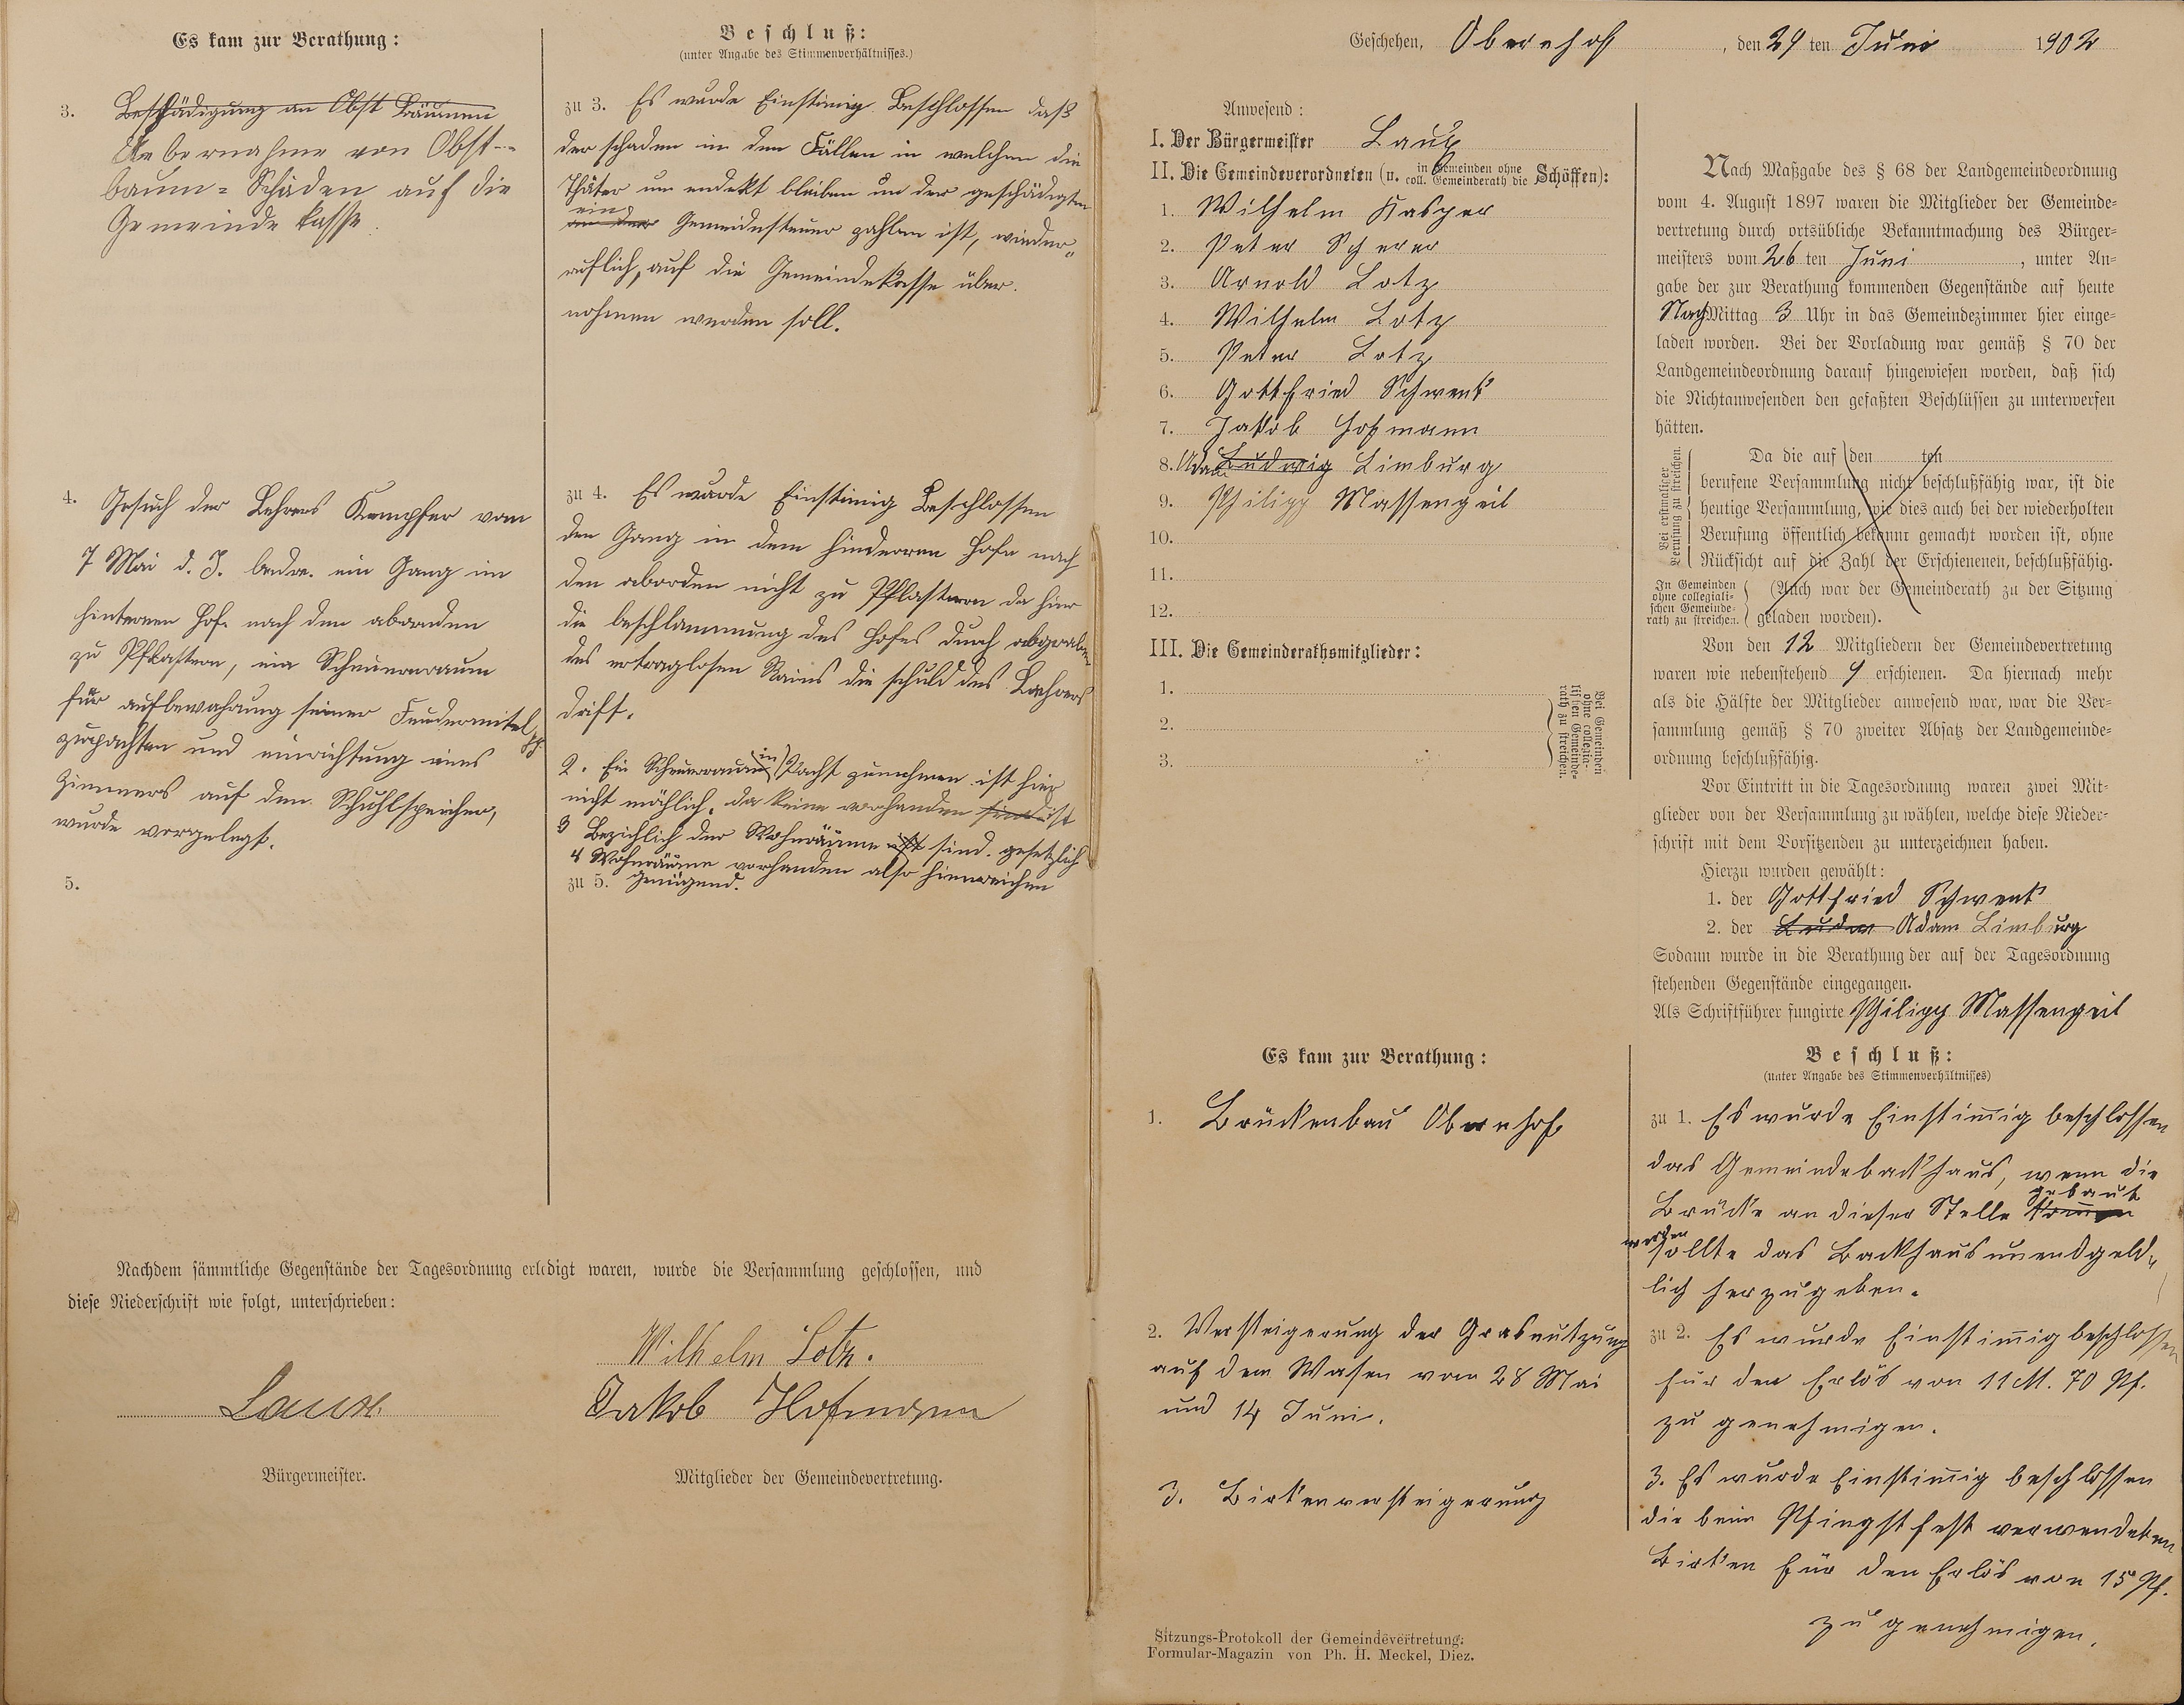 Es kam zur Berathung:
3. Beschädigung an Obst Bäumen
Uebernahme von Obst-
baum-Schäden auf die
Gemeinde kasse.
4. Gesuch der Lehrers Kempfer vom
7 Mai d. J. ein Gang im
hinteren Hofe nach den aborden
zu Pflastern, ein Scheuernraum
für aufbewahrung seiner Feudermitel
zupachten und einrichtung eines
Zimmers auf den Schuhlspeicher,
wurde vorgelegt.
5.
Beschluß:
(unter Angabe des Stimmenverhältnisses.)
zu 3. Es wurde Einstimig Beschlossen daß
der schaden in den Fällen in welchen die
Thäter un endekt bleiben un der geschädigten
ein
Gemeindesteuer zahler ist, wieder
ruflich, auf die Gemeindekasse über
nohmen werden soll.
zu 4. Es wurde Einstimig Beschlossen
den Gang in dem hinderren Hofe nach
den aborden nicht zu Pflastern da hier
die beschlammung des Hofes durch abgraben
des ertraglosen Rains die schuld des Lehrers
drift.
2. Ein Scheuerraum in Pacht zunehmen ist hier
nicht mächlich, da keine vorhanden sind ist
3 Bezichlich der Wohnräume ist sind gesetzlich
4 Wohnräume vorhanden also hinreichen
zu 5. genügend.
Nachdem sämmtliche Gegenstände der Tagesordnung erledigt waren, wurde die Versammlung geschlossen, und
diese Niederschrift wie folgt, unterschrieben:
Wilhelm Lotz.
Laux
Jakob Hofmann
Bürgermeister.
Mitglieder der Gemeindevertretung.
Geschehen, Obernhof, den 29 ten Juni 1902
Anwesend:
I. Der Bürgermeister Laux
II. Die Gemeindeverordneten (u. in Gemeinden ohne coll. Gemeinderath die Schöffen):
1. Wilhelm Kasper
2. Peter Scherer
3. Arnold Lotz
4. Wilhelm Lotz
5. Peter Lotz
6. Gottfried Schwenk
7. Jakob Hofmann
8. Adam Ludwig Limburg
9. Philipp Massengeil
10.
11.
12.
III. Die Gemeinderathsmitglieder:
1.
2.
3.
Bei Gemeinden
ohne collegia-
lischen Gemeinde-
rath zu streichen.
Nach Maßgabe des § 68 der Landgemeindeordnung
vom 4. August 1897 waren die Mitglieder der Gemeinde-
vertretung durch ortsübliche Bekanntmachung des Bürger-
meisters vom 26 ten Juni, unter An-
gabe der zur Berathung kommenden Gegenstände auf heute
Nach Mittag 3 Uhr in das Gemeindezimmer hier einge-
laden worden. Bei der Vorladung war gemäß § 70 der
Landgemeindeordnung darauf hingewiesen worden, daß sich
die Nichtanwesenden den gefaßten Beschlüssen zu unterwerfen
hätten.
Bei erstmaliger
Berufung zu streichen.
Da die auf den ten
berufene Versammlung nicht beschlußfähig war, ist die
heutige Versammlung, wie dies auch bei der wiederholten
Berufung öffentlich bekannt gemacht worden ist, ohne
Rücksicht auf die Zahl der Erschienenen, beschlußfähig.
In Gemeinden
ohne collegiali-
schen Gemeinde-
rath zu streichen.
(Auch war der Gemeinderath zu der Sitzung
geladen worden).
Von den 12 Mitgliedern der Gemeindevertretung
waren wie nebenstehend 9 erschienen. Da hiernach mehr
als die Hälfte der Mitglieder anwesend war, war die Ver-
sammlung gemäß § 70 zweiter Absatz der Landgemeinde-
ordnung beschlußfähig.
Vor Eintritt in die Tagesordnung waren zwei Mit-
glieder von der Versammlung zu wählen, welche diese Nieder-
schrift mit dem Vorsitzenden zu unterzeichnen haben.
Hierzu wurden gewählt:
1. der Gottfried Schwenk
2. der Adam Limburg
Sodann wurde in die Berathung der auf der Tagesordnung
stehenden Gegenstände eingegangen.
Als Schriftführer fungirte Philipp Massengeil
Es kam zur Berathung:
1. Brückenbau Obernhof
2. Versteigerung der Grasnutzung
auf dem Wasen vom 28 Mai
und 14 Juni.
3. Birkenversteigerung
Beschluß:
(unter Angabe des Stimmenverhältnisses)
zu 1. Es wurde Einstimig beschlossen
das Gemeindebackhaus, wenn die
gebaut
Brücke an dieser Stelle
werden
sollte das Backhaus unendgeld-
lich herzugeben.
zu 2. Es wurde Einstimig beschlossen
für den Erlös von 11 M. 70 Pf.
zu genehmigen.
3. Es wurde Einstimig beschlossen
die beim Pfingstfest verwendeten
Birken für den Erlös von 15 Pf.
zu genehmigen.
Sitzungs-Protokoll der Gemeindevertretung.
Formular-Magazin von Ph. H. Meckel, Diez.